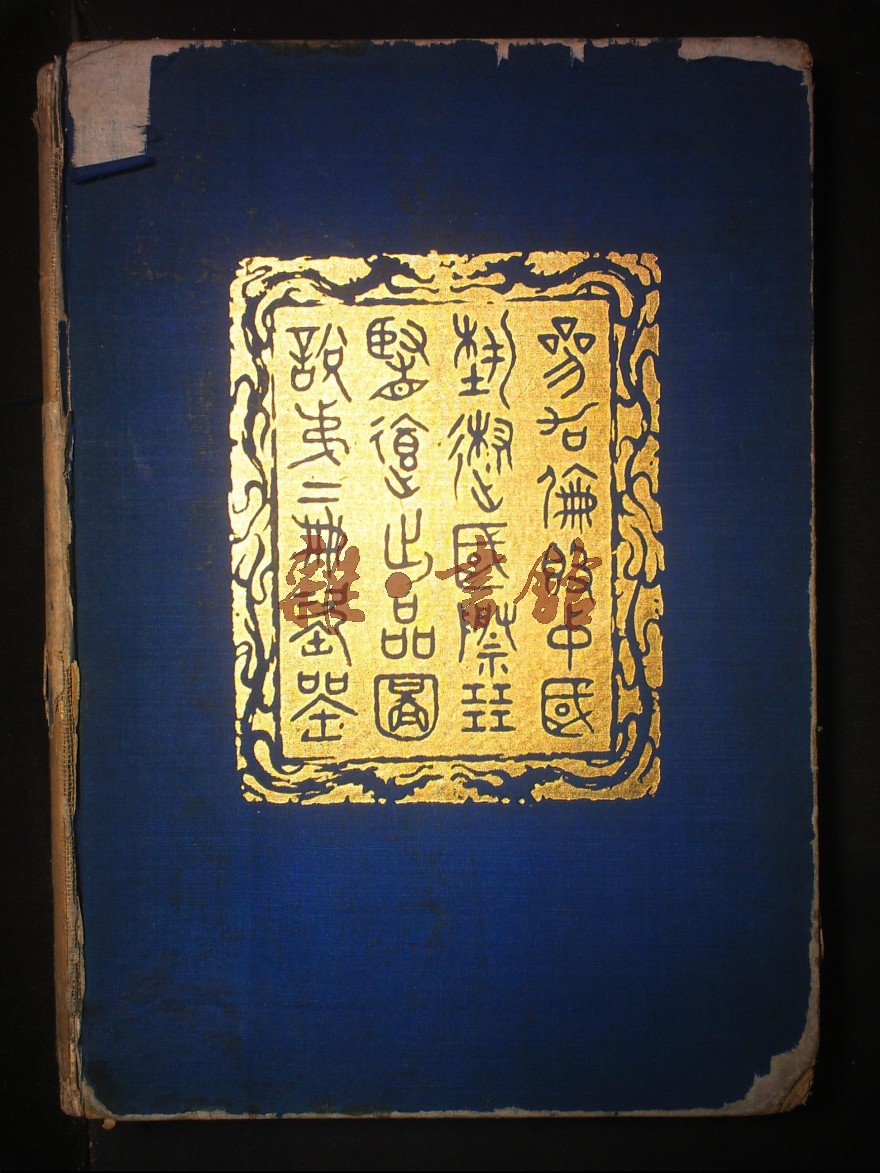 參加倫敦中國
藝術國際展
覽會出品圖
說第二冊瓷器
雜·書館